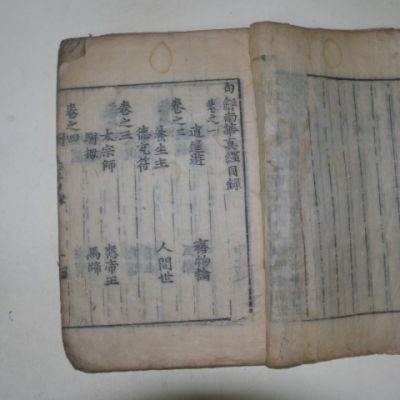 句解南華真經目錄
卷之一
逍遙遊 齊物論
卷之二
養生主 人間世
德充符
卷之三
大宗師 應帝王
卷之四
駢拇 馬蹄